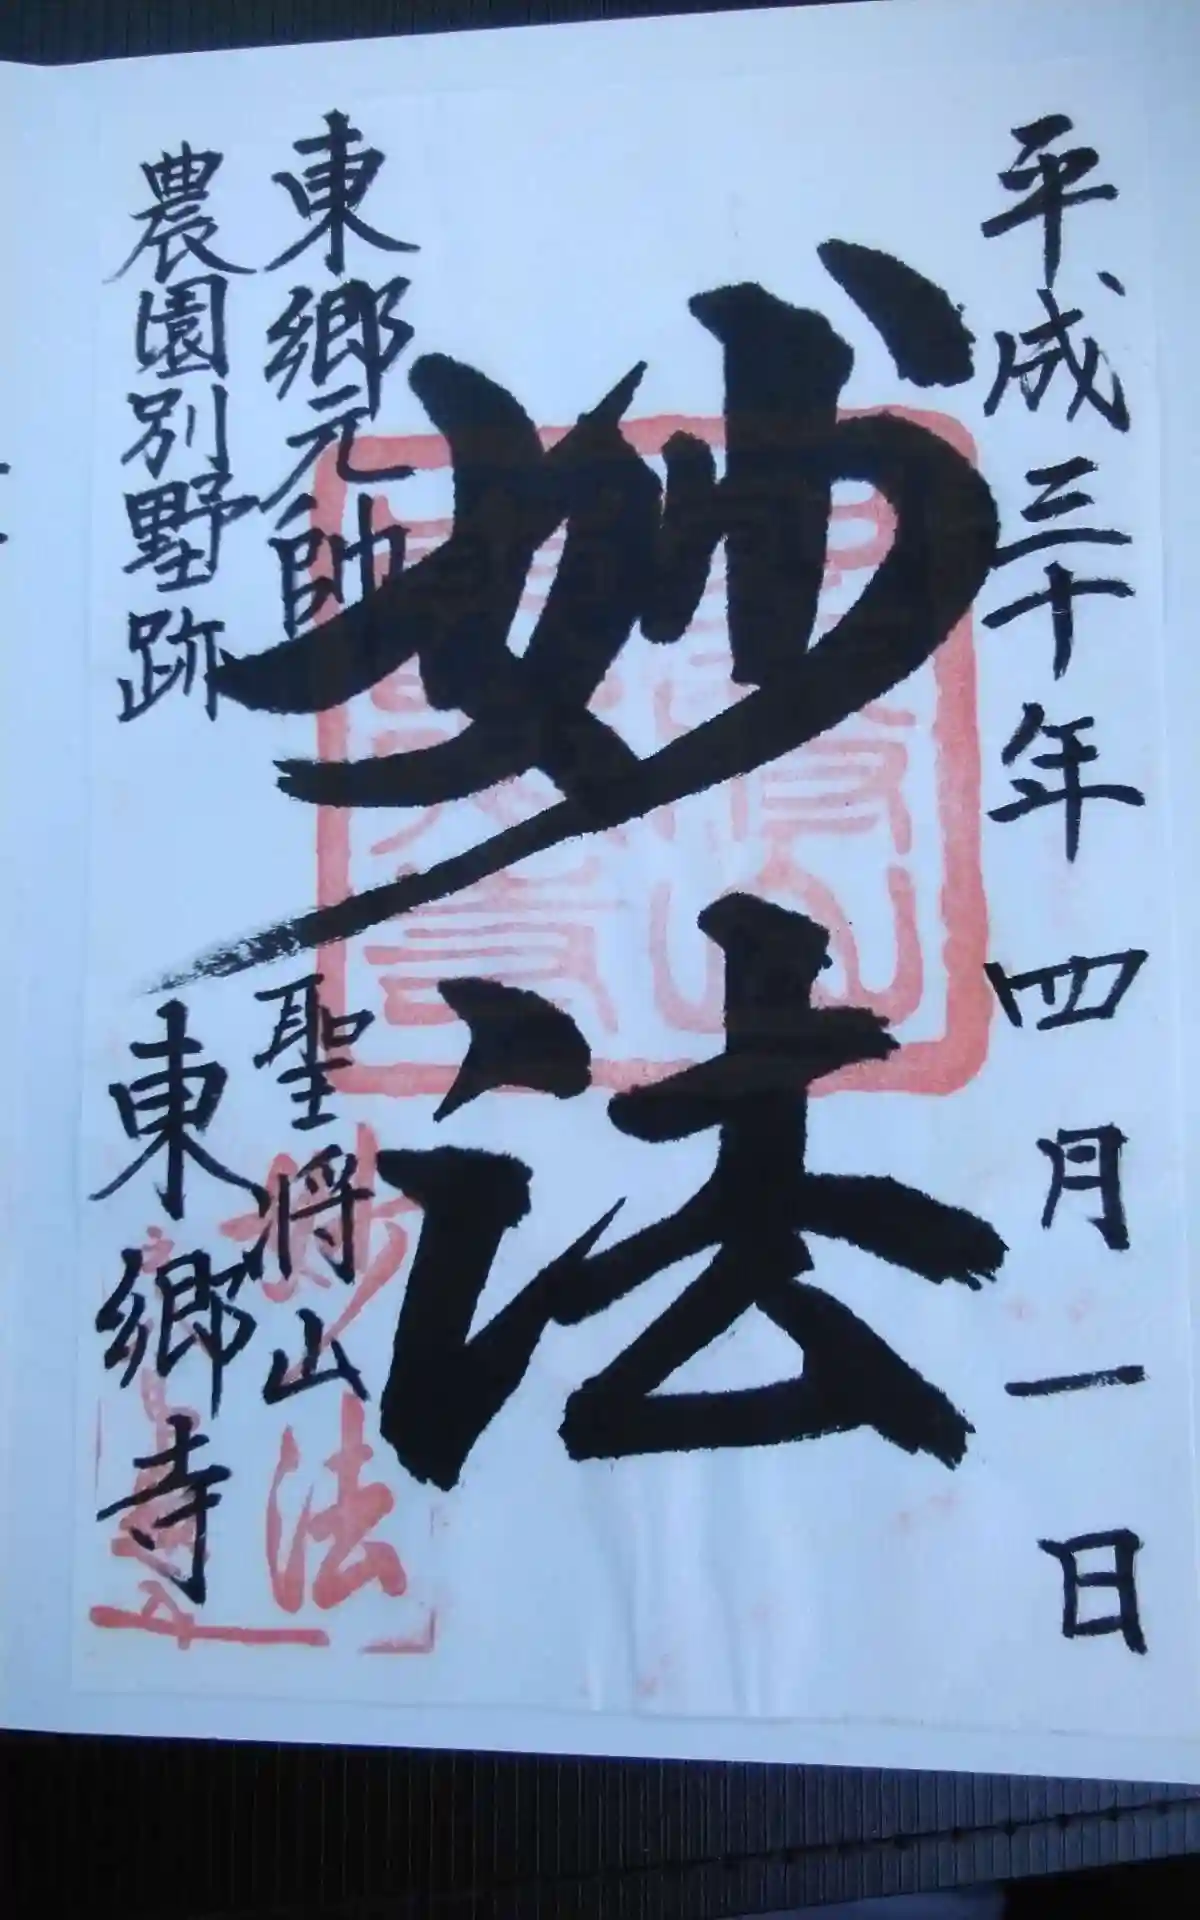 平成三十年四月一日
妙法
東郷元帥
農園別墅跡
聖将山
東郷寺
妙法